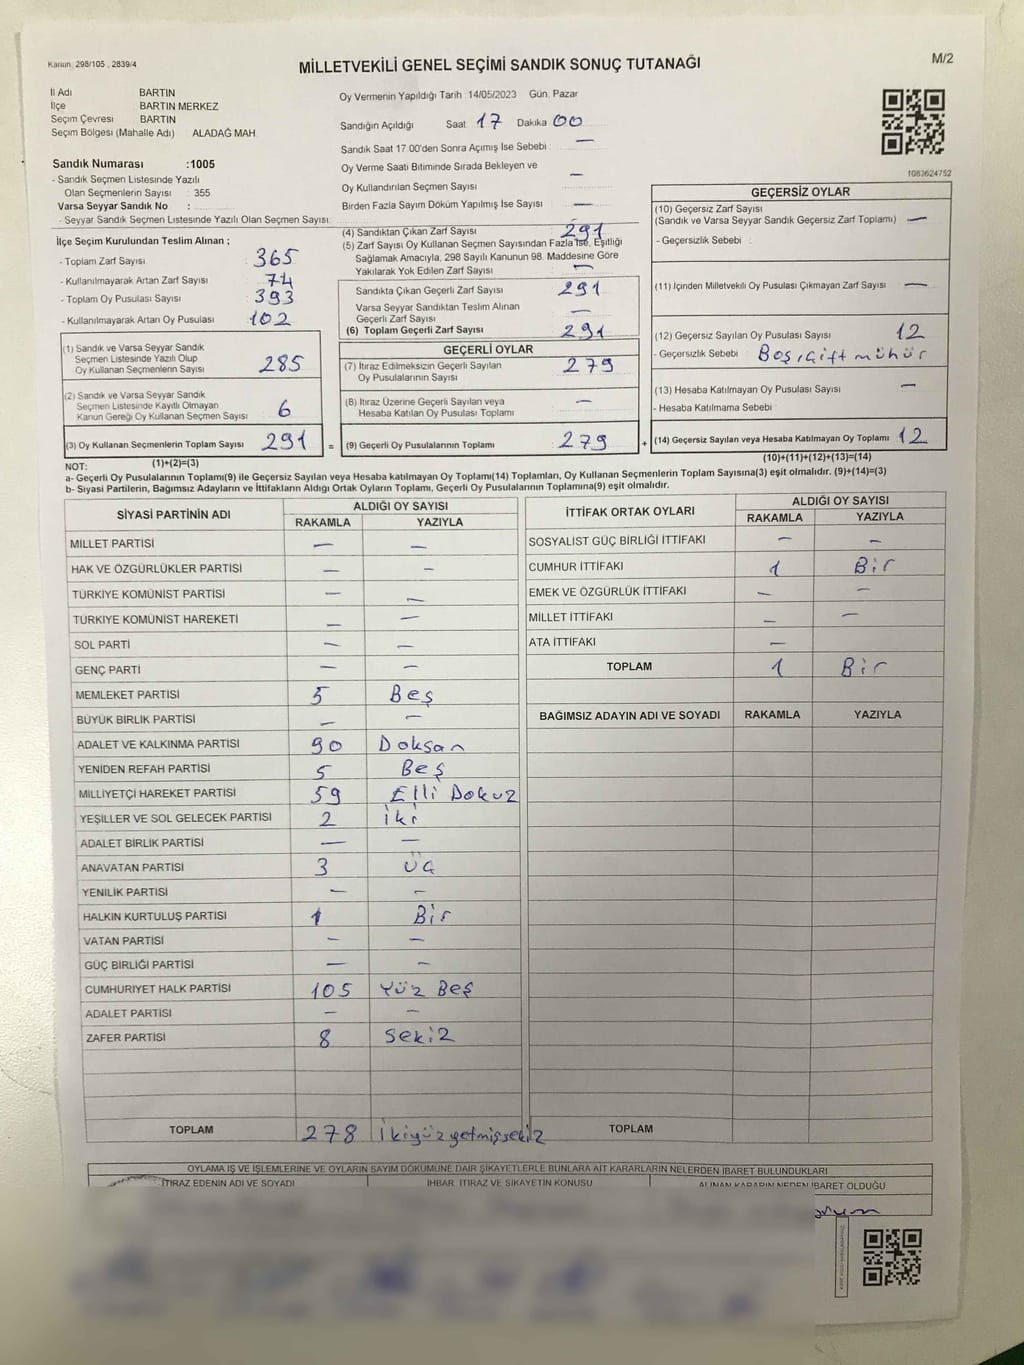 Kanun: 298/105 , 2839/4
MİLLETVEKİLİ GENEL SEÇİMİ SANDIK SONUÇ TUTANAĞI
M/2
İl Adı BARTIN
İlçe BARTIN MERKEZ
Seçim Çevresi BARTIN
Seçim Bölgesi (Mahalle Adı) ALADAĞ MAH.
Sandık Numarası :1005
- Sandık Seçmen Listesinde Yazılı
Olan Seçmenlerin Sayısı : 355
Varsa Seyyar Sandık No :
- Seyyar Sandık Seçmen Listesinde Yazılı Olan Seçmen Sayısı:
Oy Vermenin Yapıldığı Tarih :14/05/2023 Gün: Pazar
Sandığın Açıldığı Saat 17 Dakika 00
Sandık Saat 17:00'den Sonra Açımış İse Sebebi : —
Oy Verme Saati Bitiminde Sırada Bekleyen ve
Oy Kullandırılan Seçmen Sayısı —
Birden Fazla Sayım Döküm Yapılmış İse Sayısı —
1083624752
İlçe Seçim Kurulundan Teslim Alınan ;
- Toplam Zarf Sayısı : 365
- Kullanılmayarak Artan Zarf Sayısı : 74
- Toplam Oy Pusulası Sayısı : 393
- Kullanılmayarak Artan Oy Pusulası : 102
(1) Sandık ve Varsa Seyyar Sandık
Seçmen Listesinde Yazılı Olup
Oy Kullanan Seçmenlerin Sayısı 285
(2) Sandık ve Varsa Seyyar Sandık
Seçmen Listesinde Kayıtlı Olmayan
Kanun Gereği Oy Kullanan Seçmen Sayısı 6
(3) Oy Kullanan Seçmenlerin Toplam Sayısı 291 =
(1)+(2)=(3)
(4) Sandıktan Çıkan Zarf Sayısı : 291
(5) Zarf Sayısı Oy Kullanan Seçmen Sayısından Fazla İse, Eşitliği
Sağlamak Amacıyla, 298 Sayılı Kanunun 98. Maddesine Göre
Yakılarak Yok Edilen Zarf Sayısı : —
Sandıkta Çıkan Geçerli Zarf Sayısı : 291
Varsa Seyyar Sandıktan Teslim Alınan
Geçerli Zarf Sayısı : —
(6) Toplam Geçerli Zarf Sayısı : 291
GEÇERLİ OYLAR
(7) İtiraz Edilmeksizin Geçerli Sayılan
Oy Pusulalarının Sayısı : 279
(8) İtiraz Üzerine Geçerli Sayılan veya
Hesaba Katılan Oy Pusulası Toplamı : —
(9) Geçerli Oy Pusulalarının Toplamı : 279 +
GEÇERSİZ OYLAR
(10) Geçersiz Zarf Sayısı
(Sandık ve Varsa Seyyar Sandık Geçersiz Zarf Toplamı) —
- Geçersizlik Sebebi :
(11) İçinden Milletvekili Oy Pusulası Çıkmayan Zarf Sayısı : —
(12) Geçersiz Sayılan Oy Pusulası Sayısı : 12
- Geçersizlik Sebebi : Boş, çift mühür
(13) Hesaba Katılmayan Oy Pusulası Sayısı : —
- Hesaba Katılmama Sebebi :
(14) Geçersiz Sayılan veya Hesaba Katılmayan Oy Toplamı : 12
(10)+(11)+(12)+(13)=(14)
NOT:
a- Geçerli Oy Pusulalarının Toplamı(9) ile Geçersiz Sayılan veya Hesaba katılmayan Oy Toplamı(14) Toplamları, Oy Kullanan Seçmenlerin Toplam Sayısına(3) eşit olmalıdır. (9)+(14)=(3)
b- Siyasi Partilerin, Bağımsız Adayların ve İttifakların Aldığı Ortak Oyların Toplamı, Geçerli Oy Pusulalarının Toplamına(9) eşit olmalıdır.
SİYASİ PARTİNİN ADI ALDIĞI OY SAYISI
RAKAMLA YAZIYLA
MİLLET PARTİSİ — —
HAK VE ÖZGÜRLÜKLER PARTİSİ — —
TÜRKİYE KOMÜNİST PARTİSİ — —
TÜRKİYE KOMÜNİST HAREKETİ — —
SOL PARTİ — —
GENÇ PARTİ — —
MEMLEKET PARTİSİ 5 Beş
BÜYÜK BİRLİK PARTİSİ — —
ADALET VE KALKINMA PARTİSİ 90 Doksan
YENİDEN REFAH PARTİSİ 5 Beş
MİLLİYETÇİ HAREKET PARTİSİ 59 Elli Dokuz
YEŞİLLER VE SOL GELECEK PARTİSİ 2 İki
ADALET BİRLİK PARTİSİ — —
ANAVATAN PARTİSİ 3 Üç
YENİLİK PARTİSİ — —
HALKIN KURTULUŞ PARTİSİ 1 Bir
VATAN PARTİSİ — —
GÜÇ BİRLİĞİ PARTİSİ — —
CUMHURİYET HALK PARTİSİ 105 Yüz Beş
ADALET PARTİSİ — —
ZAFER PARTİSİ 8 Sekiz
TOPLAM 278 İkiyüzyetmişsekiz
İTTİFAK ORTAK OYLARI ALDIĞI OY SAYISI
RAKAMLA YAZIYLA
SOSYALİST GÜÇ BİRLİĞİ İTTİFAKI — —
CUMHUR İTTİFAKI 1 Bir
EMEK VE ÖZGÜRLÜK İTTİFAKI — —
MİLLET İTTİFAKI — —
ATA İTTİFAKI —
TOPLAM 1 Bir
BAĞIMSIZ ADAYIN ADI VE SOYADI RAKAMLA YAZIYLA
TOPLAM
OYLAMA İŞ VE İŞLEMLERİNE VE OYLARIN SAYIM DÖKÜMÜNE DAİR ŞİKAYETLERLE BUNLARA AİT KARARLARIN NELERDEN İBARET BULUNDUKLARI
İTİRAZ EDENİN ADI VE SOYADI İHBAR, İTİRAZ VE ŞİKAYETİN KONUSU ALINAN KARARIN NEDEN İBARET OLDUĞU